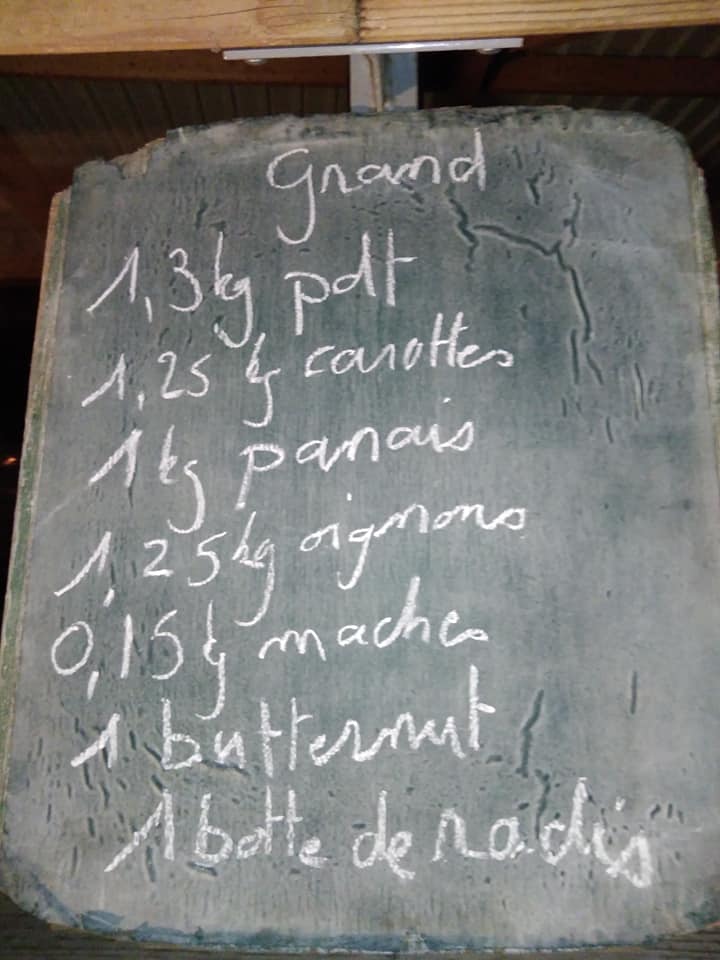 Grand
1,3kg pdt
1,25 kg carottes
1 kg panais
1,25kg oignons
0,15kg maches
1 butternut
1 botte de radis